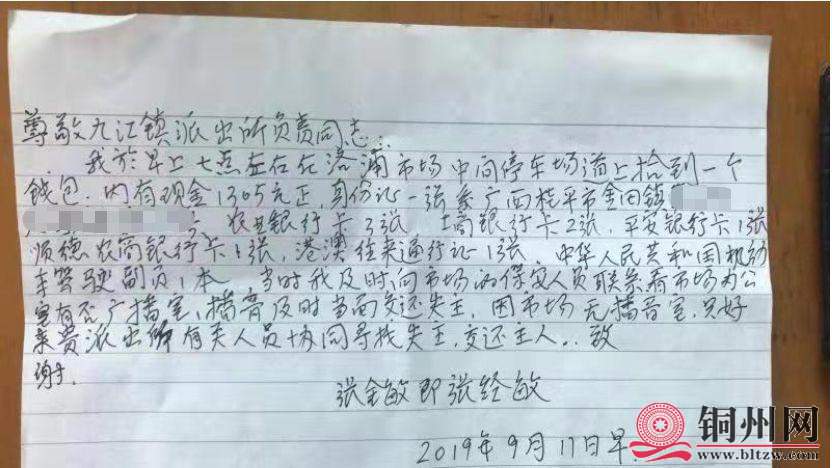 尊敬九江镇派出所负责同志:
我於早上七点左右在洛浦市场中间停车场道上拾到一个
钱包.内有现金1305元正,身份证一张系广西桂平市金田镇
农业银行卡3张 工商银行卡2张,平安银行卡1张
顺德农商银行卡1张,港澳往来通行证1张,中华人民共和国机动
车驾驶副页1本,当时我及时向市场的保安人员联系看市场办公
室有否广播室,播音及时当面交还失主,因市场无播音室,只好
来贵派出所有关人员协同寻找失主,交还主人..致
谢.
张全敏即张经敏
2019年9月17日早.
铜州网
www.bltzw.com